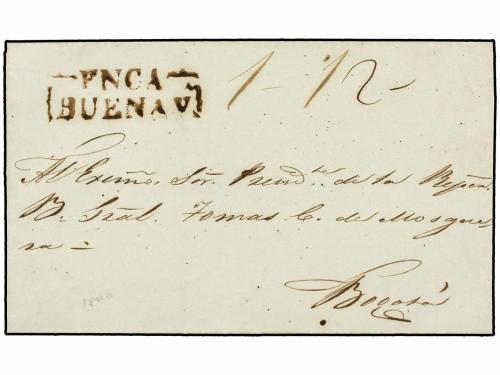 PNCA
BUENAV.
1 - 1/2 -
Al Exmo. Sor. Presidte. de la Repca.
B. Gral. Tomas C. de Mosque-
ra =
Bogotá
1846